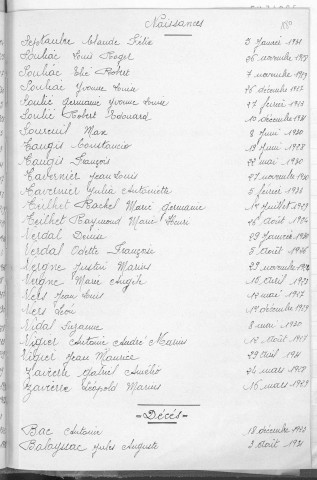 Naissances
Septautre Claude Félix 3 Janvier 1931
Souliac Louis Roger 26 novembre
Souliac Elié Robert 7 novembre
Souliac Yvonne 26 décembre
Soulié Germaine Yvonne 27 février
Soulié Robert Edouard 10 décembre
Soureuil Max 8 Juin 1930
Taugis Constancio 13 Juin 1928
Taugis François 22 mai 1930
Tavernier Jean Louis 27 novembre 1930
Tavernier Julia Antoinette 5 février
Teilhet Rachel Marie Germaine Juillet
Teilhet Raymond Marie Henri Août
Verdal Denise 29 Janvier 1930
Verdal Odette Françoise 5 Août
Vergne Justin Marius 29 novembre
Vergne Marie Angèle 10 Avril
Vers Jean Louis 12 mai 1927
Vers Léon 19 décembre
Vidal Suzanne 8 mai 1930
Viguier Antoine André Marius 12 Août 1927
Viguier Jean Maurice 22 Avril
Zavierre Gabriel Amélio 24 mars 1927
Zavierre Léopold Marius 16 mars 1929
Décès
Bac Antoine 18 décembre
Balayssac Jules Auguste 3 Août 1931